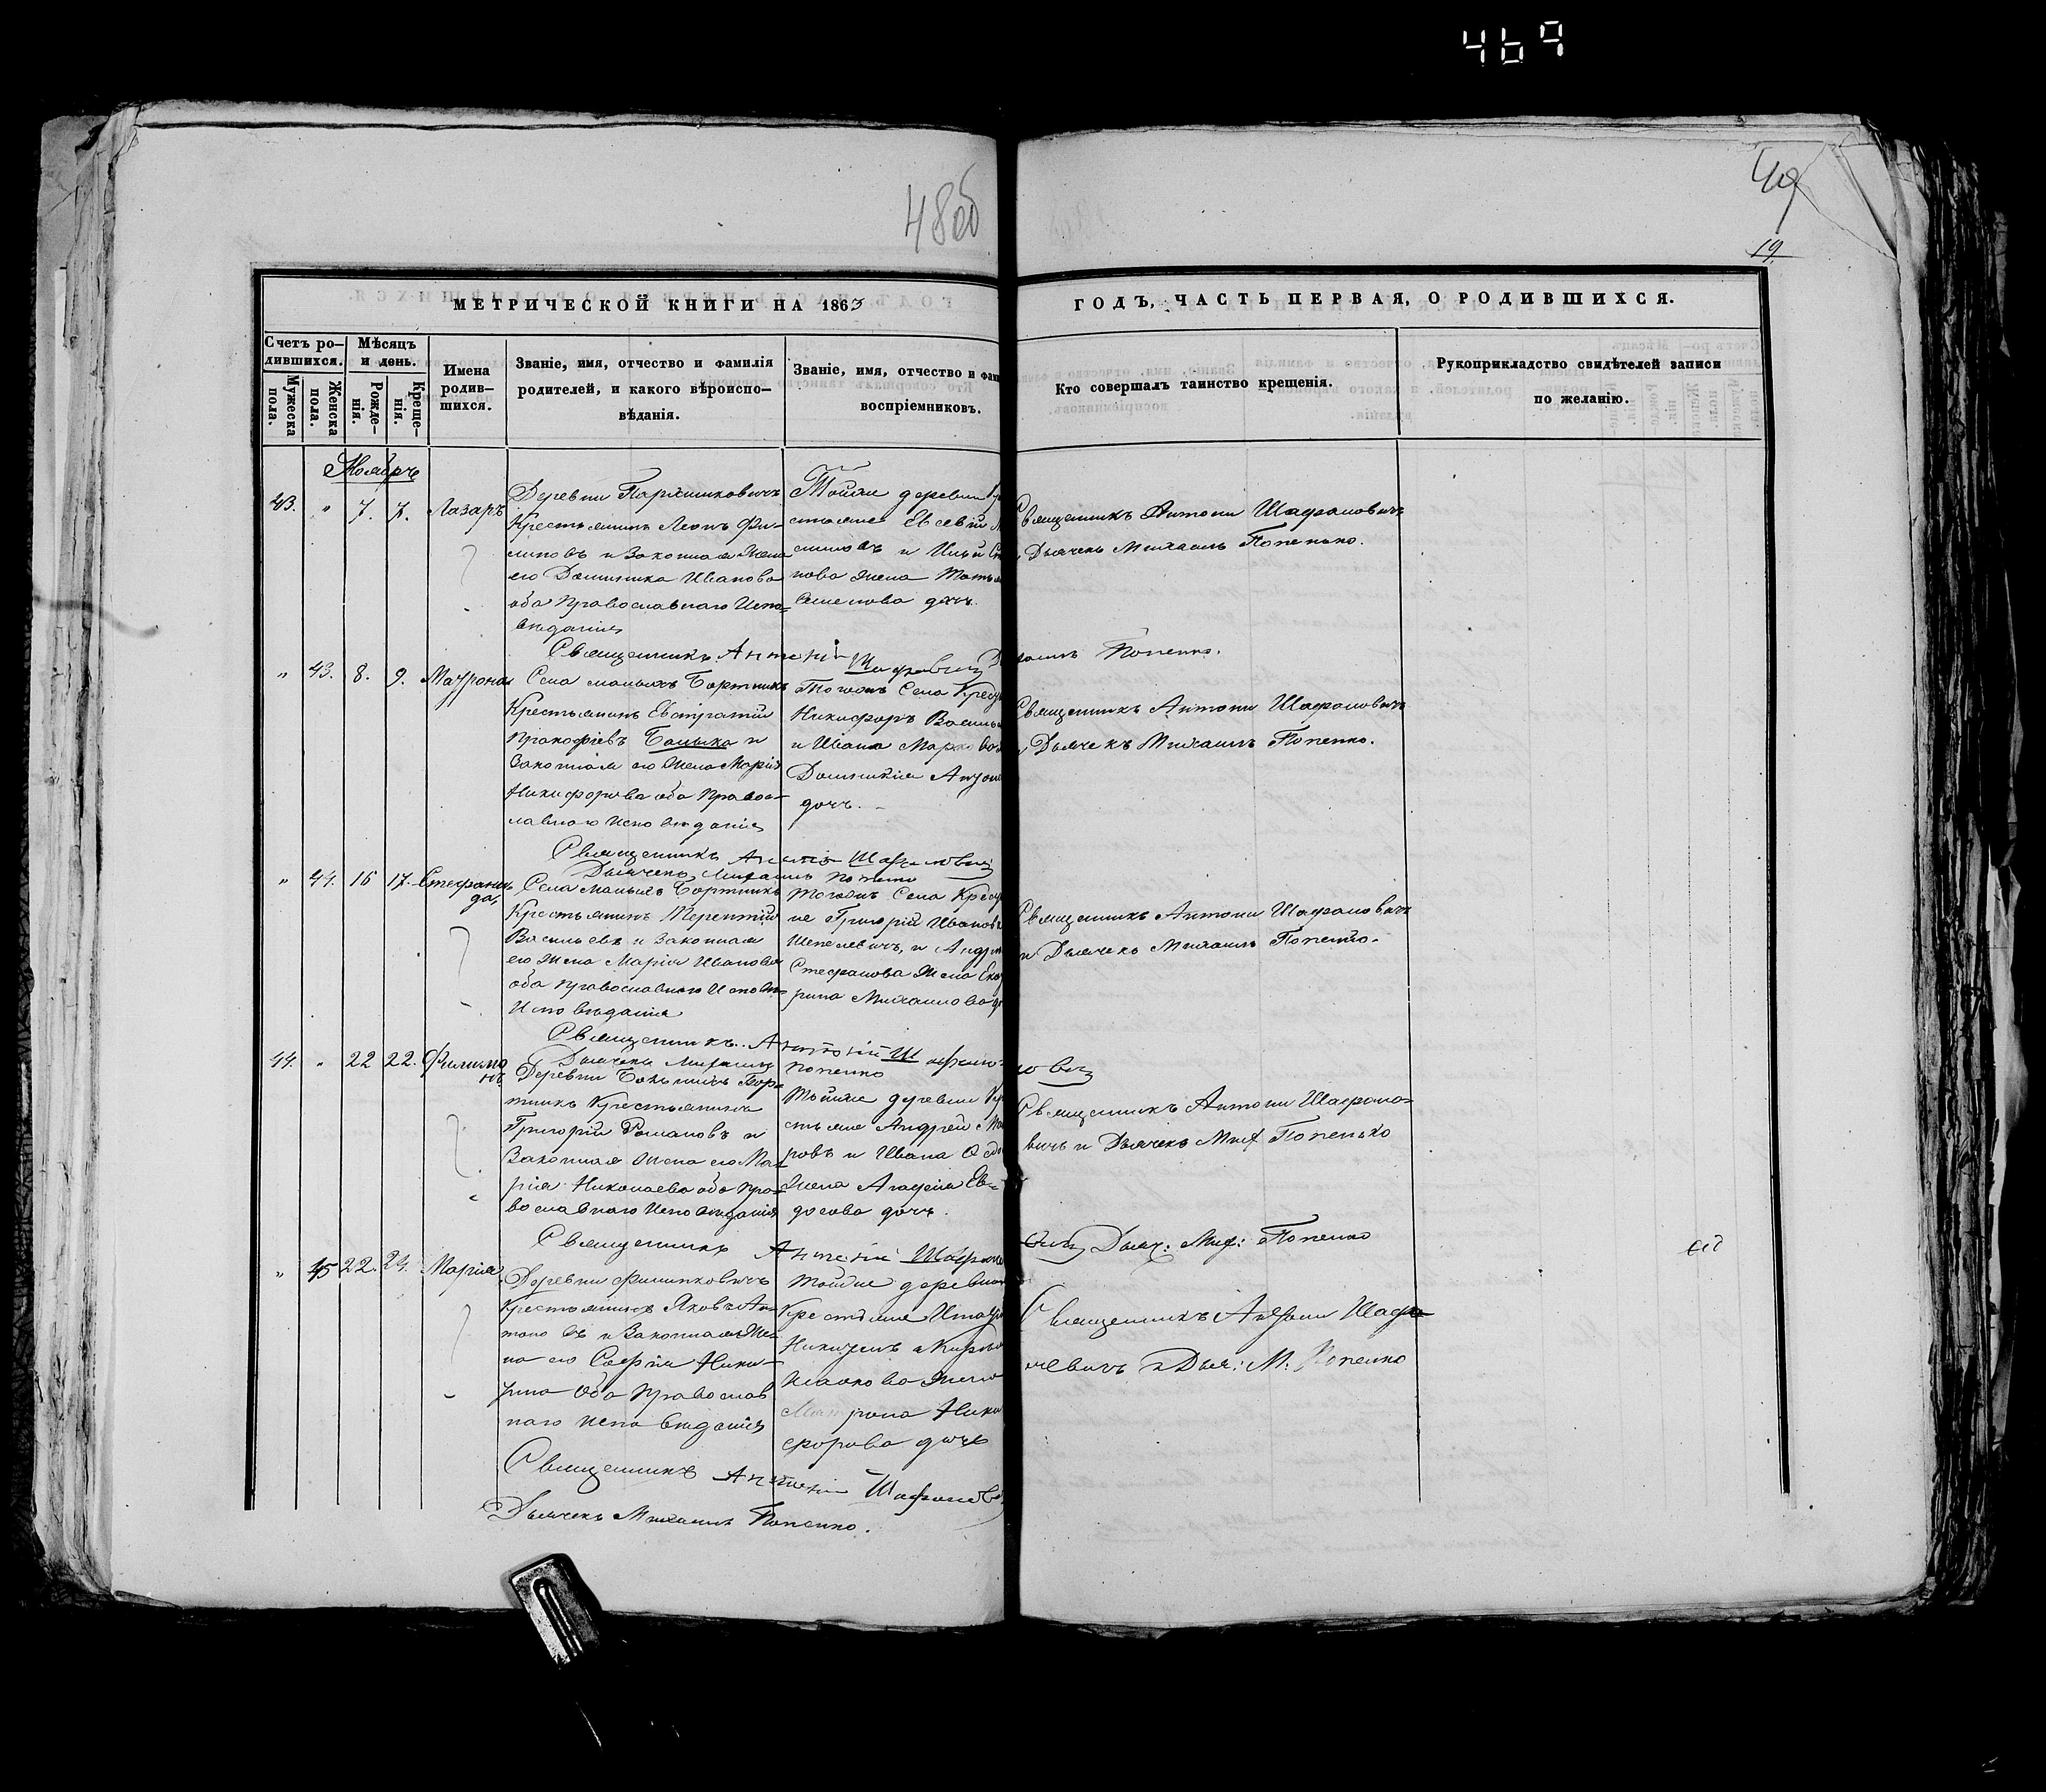 469
48об
49
19.
МЕТРИЧЕСКОЙ КНИГИ НА 1863
ГОДЪ, ЧАСТЬ ПЕРВАЯ, О РОДИВШИХСЯ.
Счетъ ро-
дившихся.
Мужеска
пола.
Женска
пола.
Мѣсяцъ
и день.
Рожде-
нія.
Креще-
нія.
Имена
родив-
шихся.
Званіе, имя, отчество и фамилія
родителей, и какого вѣроиспо-
вѣданія.
Званіе, имя, отчество и фам
воспріемниковъ.
Кто совершалъ таинство крещенія.
Рукоприкладство свидѣтелей записи
по желанію.
Ноябрь
43. " 7. 7. Лазаръ
Деревни
Крестьянинъ Леонъ Фи-
липовъ и Законная Жена
его Домникка Иванова
оба Православнаго Испо-
вѣданія
Тойже деревни Кре
стьяне Евсевій
и
пова жена Татья
Семенова дочь.
Священникъ Антони Шафрановичъ
и Дьячекъ Михаилъ Попенько.
Священникъ Антоній Попенко.
" 43. 8. 9. Матрона
Села малыхъ Бортникъ
Крестьянинъ Евстратій
Прокофіевъ Банька и
Законная его Жена Марія
Никифорова оба Правос-
лавнаго Исповѣданія
Тогожъ Села Крест
Никифоръ Василь
и Ивана Марко
Домникія Антоно
дочь.
Священникъ Антони Шафрановичъ
и Дьячекъ Михаилъ Попенко.
Священникъ Антоній
Дьячекъ Михаилъ Попенко
" 44. 16 17. Стефани
да,
Села Малыхъ Бортникъ
Крестьянинъ Терентій
Васильевъ и Законная
его Жена Марія Иванова
оба Православнаго
Исповѣданія
Тогожъ Села Крест
не Григорій Иванов
Шепелевичъ, и Андре
Стефанова Жена Ека
рина Михаилова до
Священникъ Антони Шафрановичъ
и Дьячекъ Михаилъ Попенко.
Священникъ Антоній
Дьячекъ Михаилъ Попенко
44. " 22 22. Филимо
нъ
Деревни Большихъ Бор-
тникъ Крестьянинъ
Григорій Романовъ и
Законная Жена его Ма-
рія Николаева оба Пра-
вославнаго Исповѣданія
Тойже деревни Кре
стьяне Андрей Ма
ровъ и Ивана
Жена Агафія Ев-
дочь.
Священникъ Антони Шафрано-
вичъ и Дьячекъ Мих Попенько
Священникъ Антоній Дьяч: Мих: Попенко
" 45 22. 24. Марія
Деревни Филипковичъ
Крестьянинъ Яковъ Ан-
тоновъ и Законная Же-
на его Софія Ники-
Оба Православ
наго исповѣданія
Тойже деревни
Крестьяне
Исакова Жена
Матрона Ники
форова дочь
Священникъ Антони Шафра
новичъ и Дья: М: Попенко
Священникъ Антоній Шафранов
Дьячекъ Михаилъ Попенко.